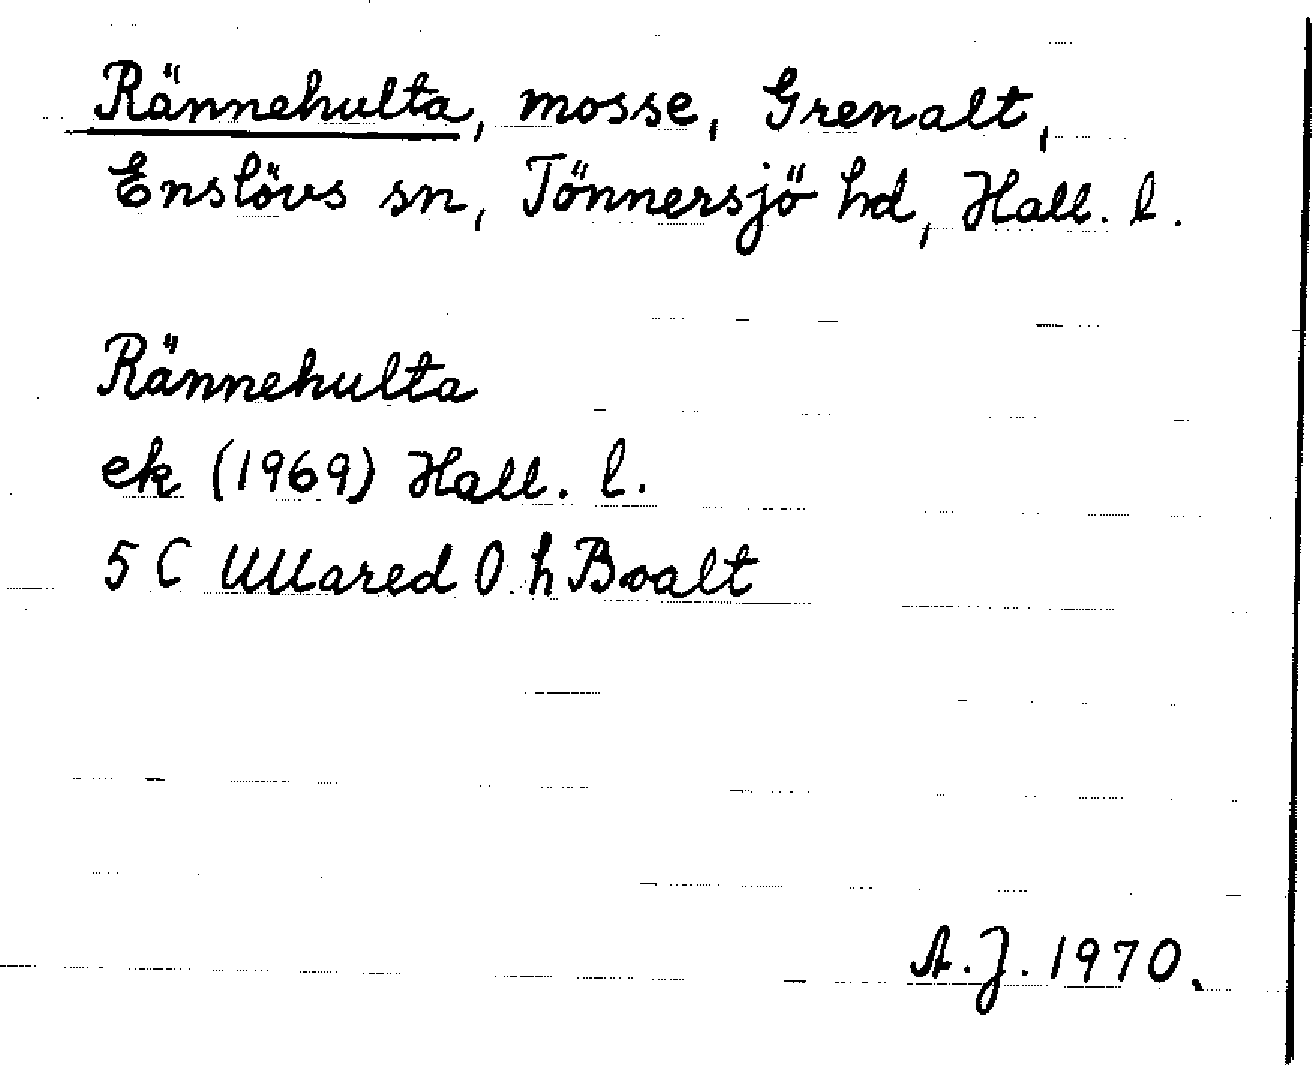 Rännehulta, mosse, Grenalt,
Enslövs sn, Tönnersjö hd, Hall. l.
Rännehulta
ek (1969) Hall. l.
5 C Ullared O h Boalt
A.J. 1970.